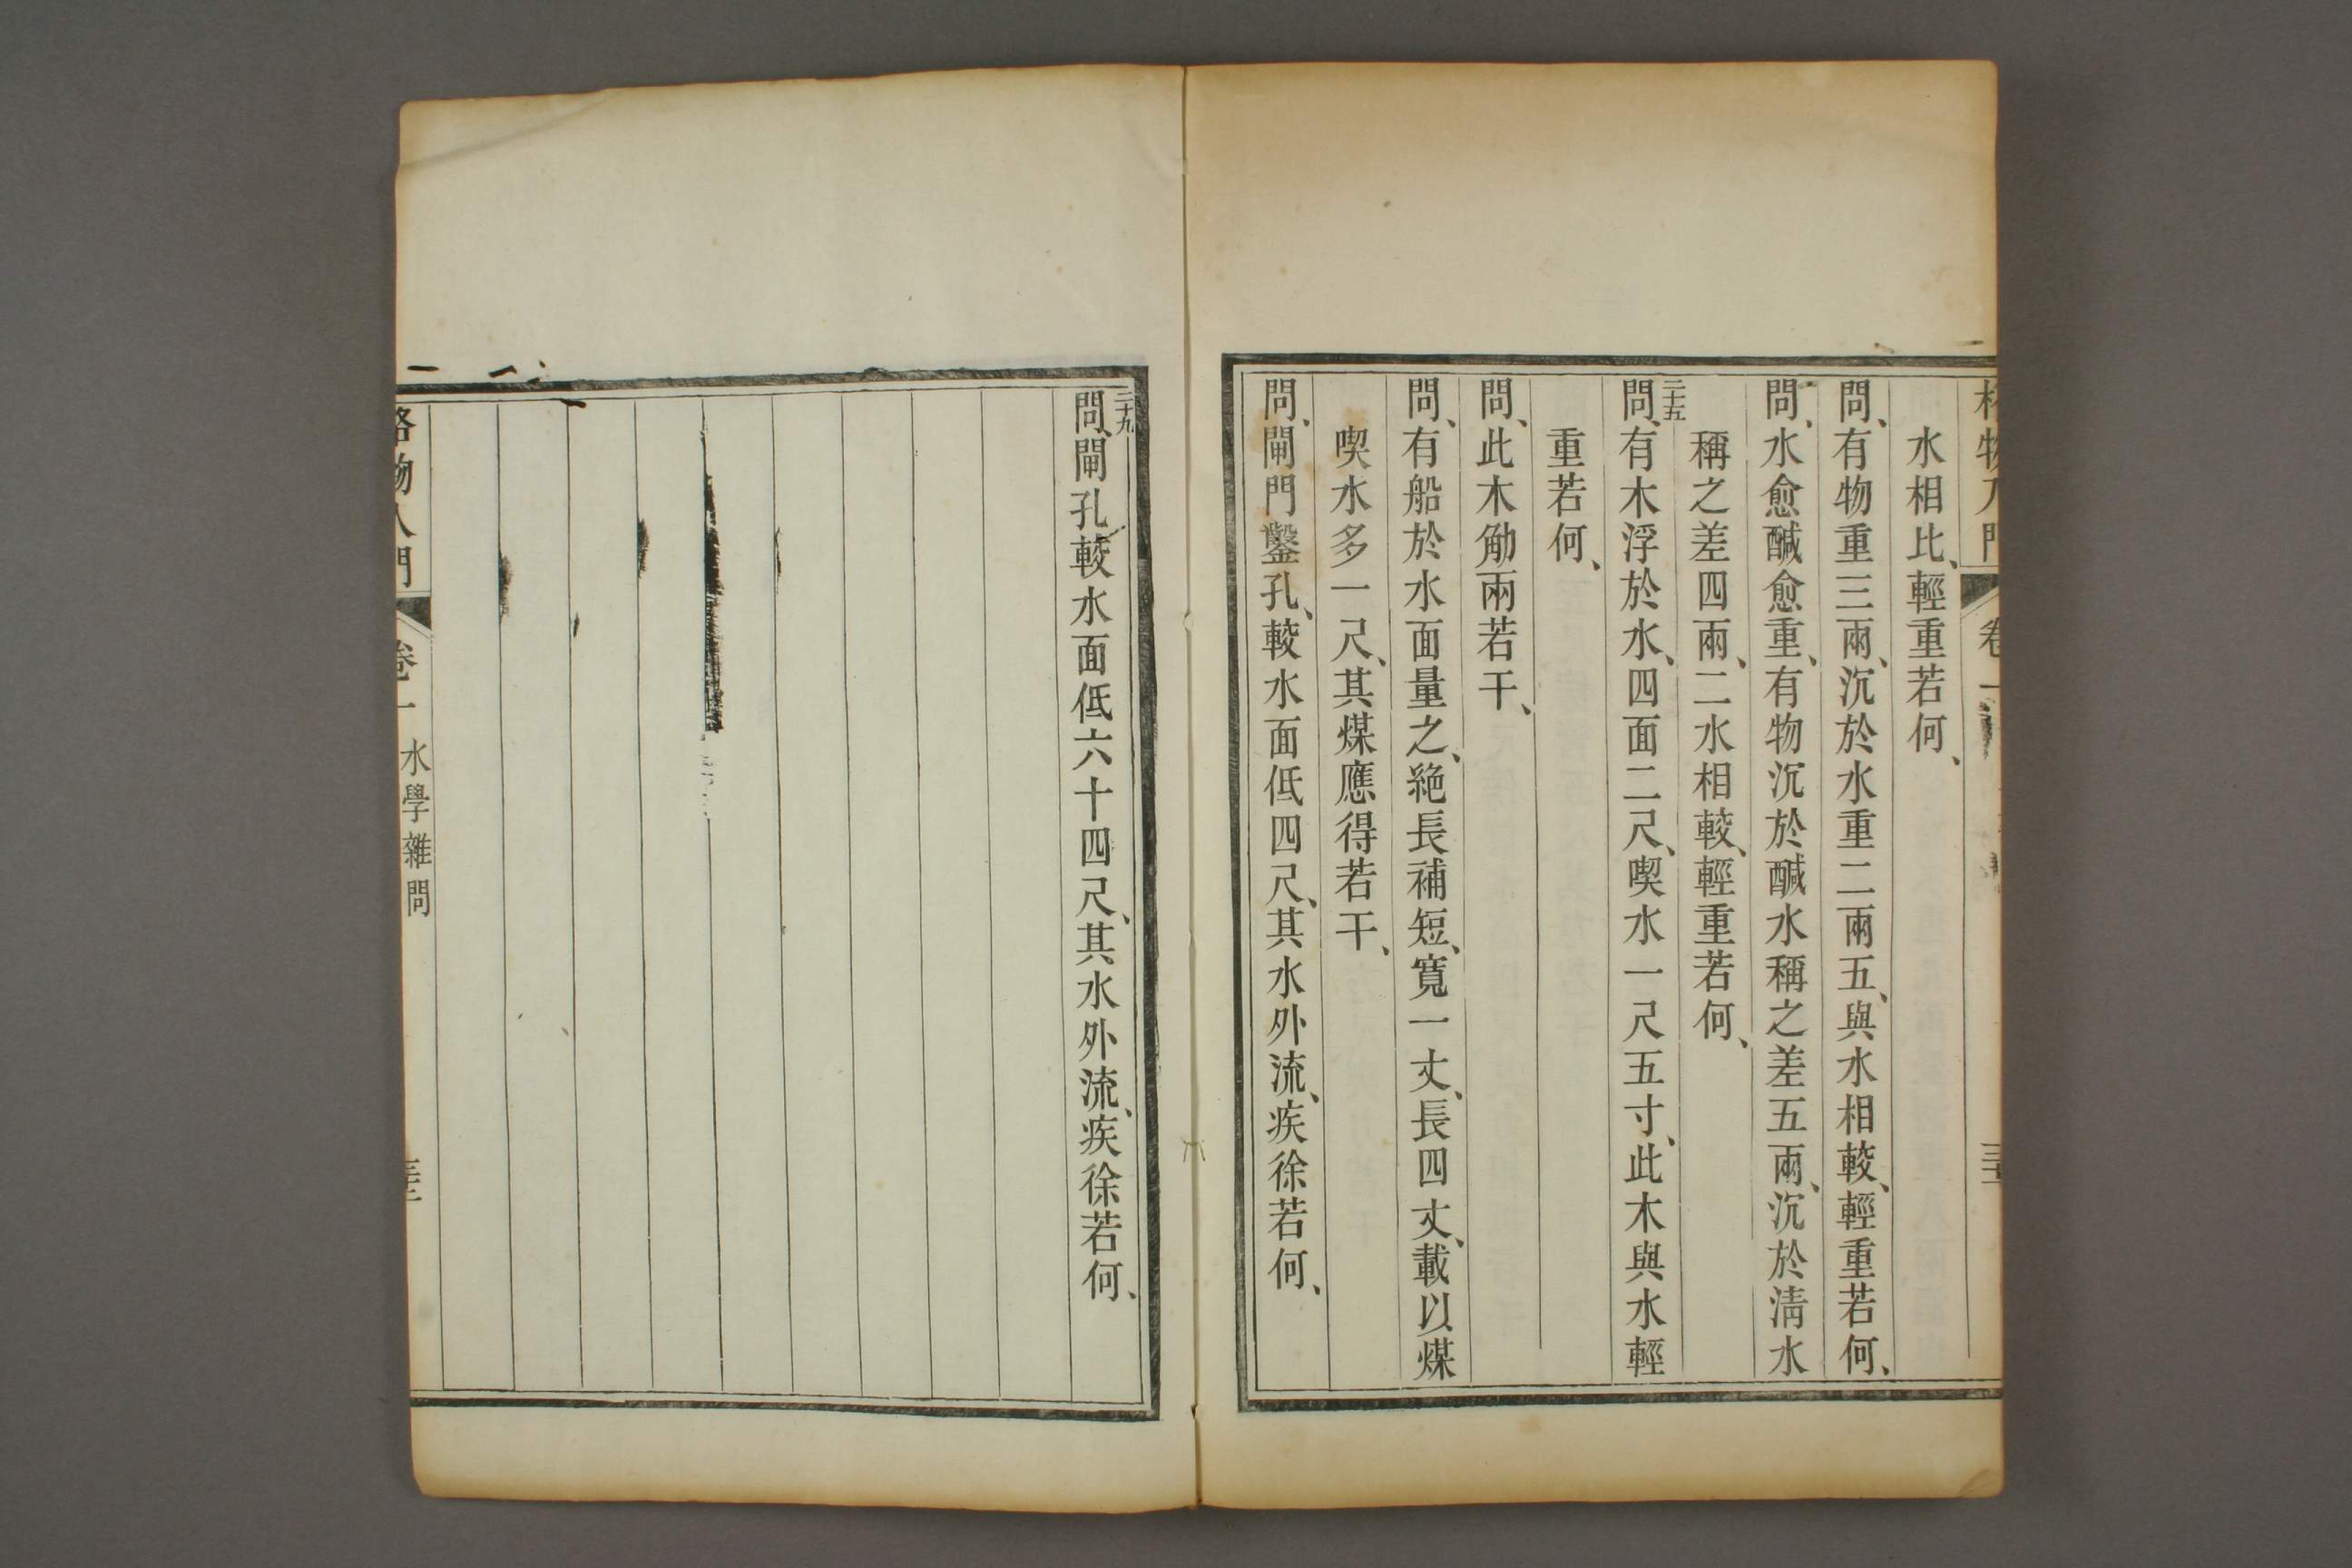 水相比、輕重若何、
問、有物重三兩、沉於水重二兩五、與水相較、輕重若何、
問、水愈醎愈重、有物沉於醎水稱之差五兩、沉於清水
稱之差四兩、二水相較、輕重若何、
二十五
問、有木浮於水、四面二尺、喫水一尺五寸、此木與水輕
重若何、
問、此木觔兩若干、
問、有船於水面量之、絕長補短、寬一丈、長四丈、載以煤
喫水多一尺、其煤應得若干、
問、閘門鑿孔、較水面低四尺、其水外流、疾徐若何、
二十九
問、閘孔較水面低六十四尺、其水外流、疾徐若何、
格物入門
卷一 水學雜問